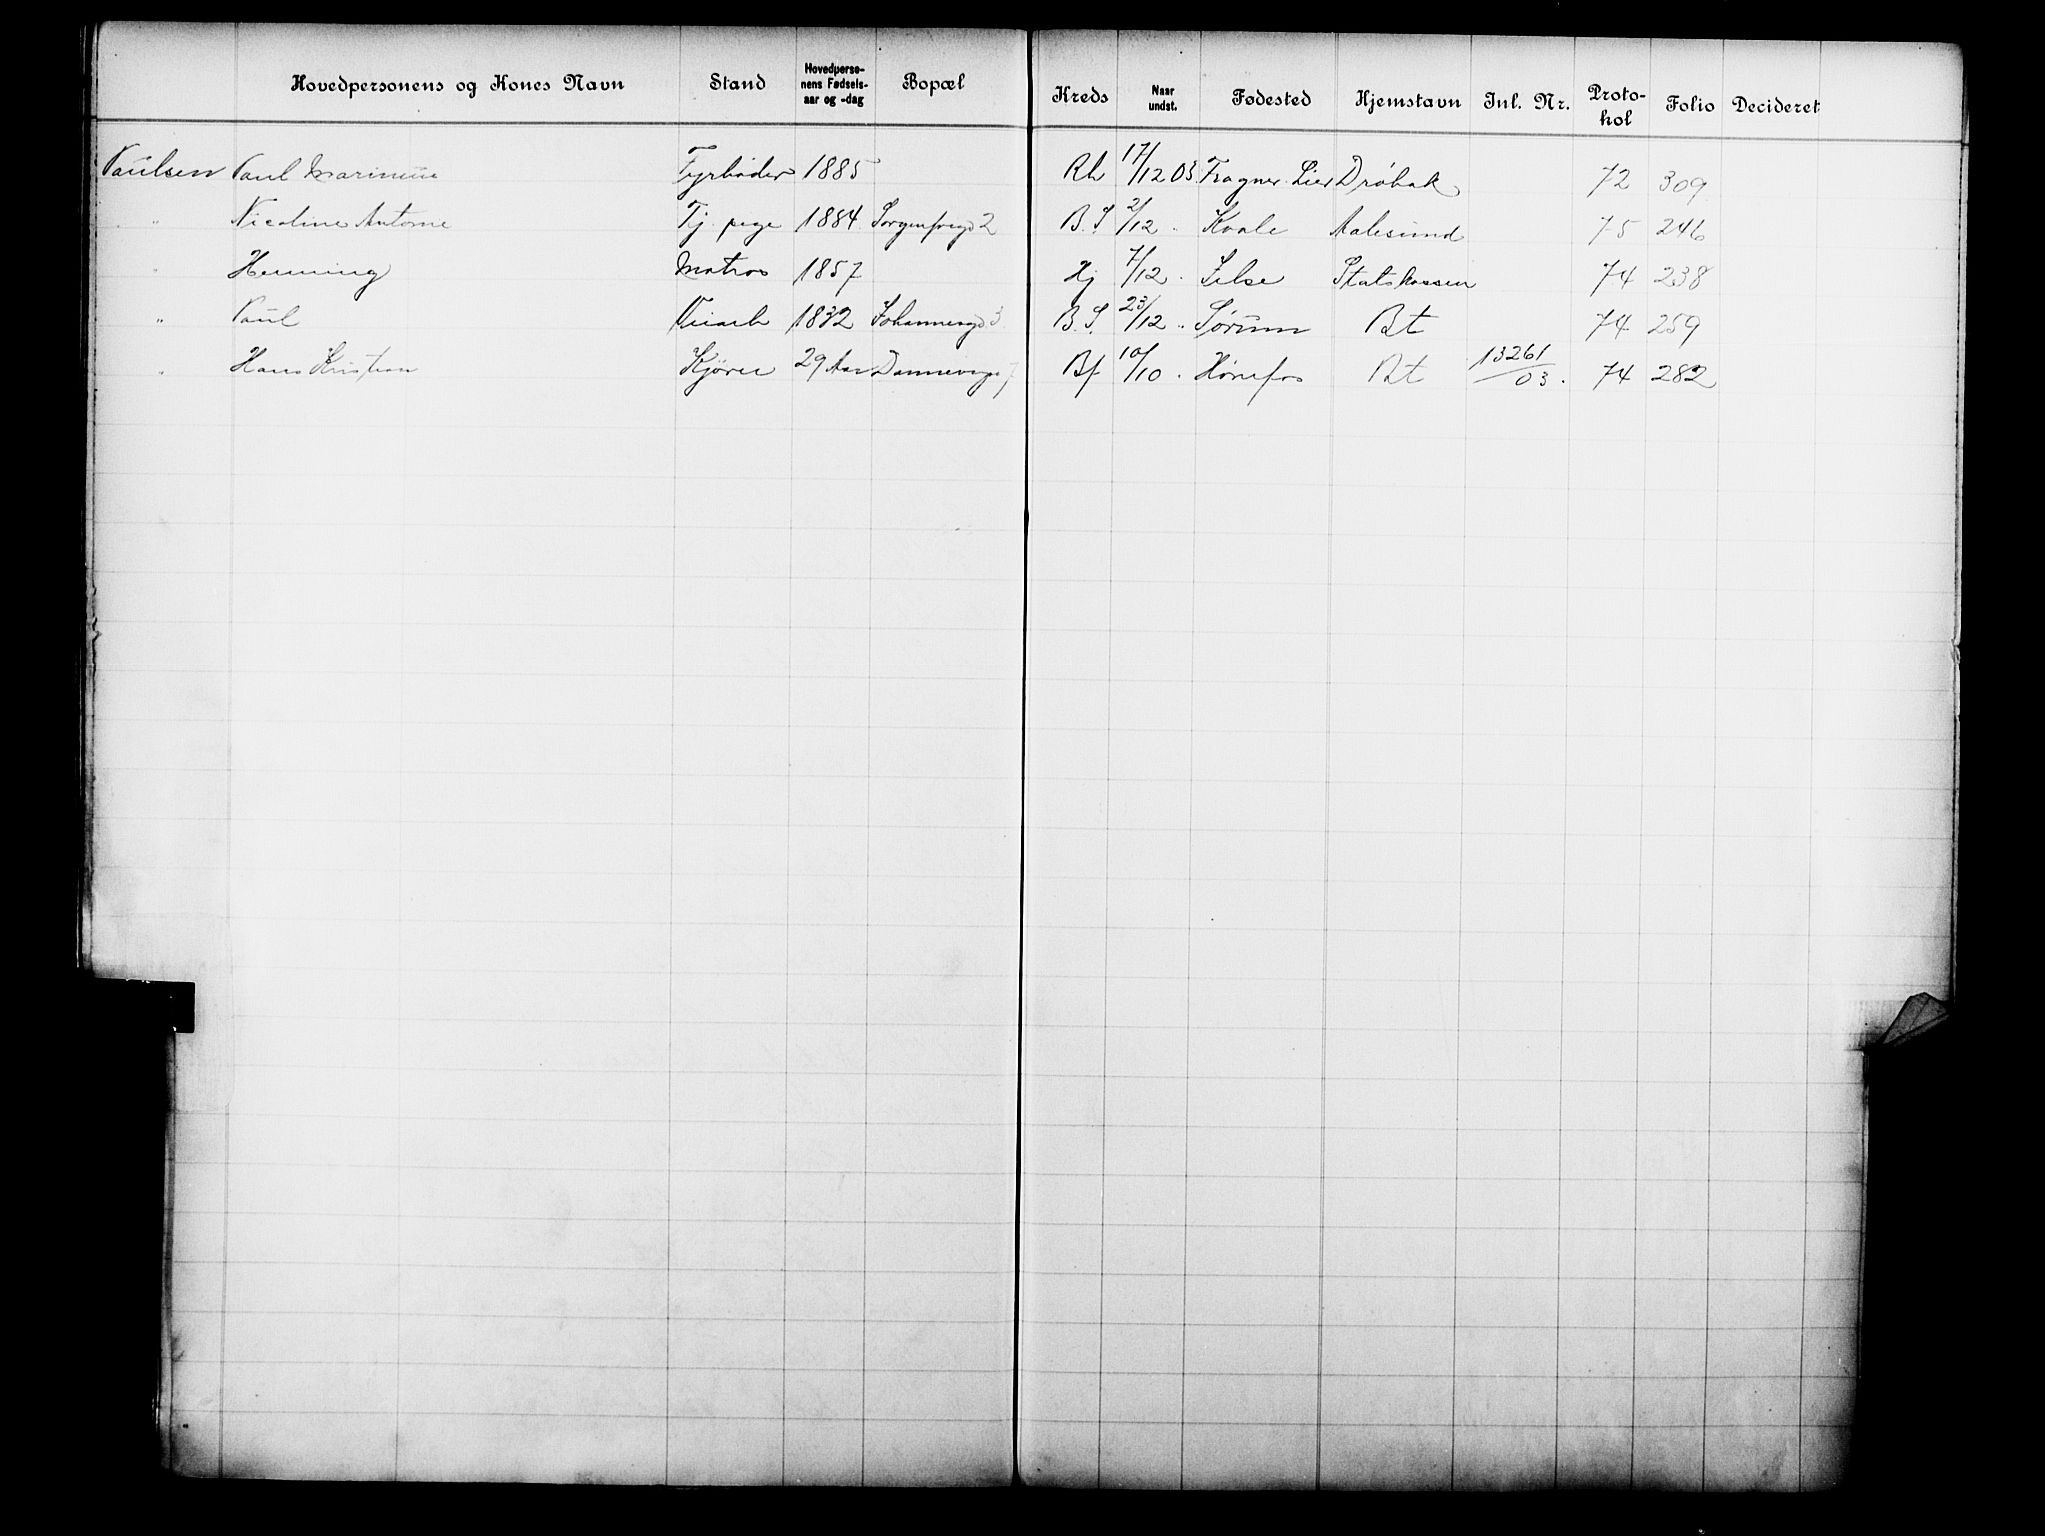 Hovedpersonens og Kones Navn Stand Hovedperso-nens Fødsels-aar og -dag Bopæl Kreds Naar undst. Fødested Hjemstavn Inl. Nr. Proto-kol Folio Decideret
Paulsen Paul Marinius Fyrbøder 1885 Rh 17/12 03 Fragner Lier Drøbak 72 309
" Nicoline Antonie Tj. pige 1884 Sorgenfrigd 2 B.S 2/12 " Kvale Aalesund 75 246
" Henning Matros 1857 Hj 7/12 " Statskassen 74 238
" Paul Veiarb 1832 Johannesgd 3 B.S. 23/12 " Sørum Bt 74 259
" Hans Kristian Kjører 29 Aar Dannevigs 7 Bf 10/10 " Hønefos Bt 13261/03. 74 282